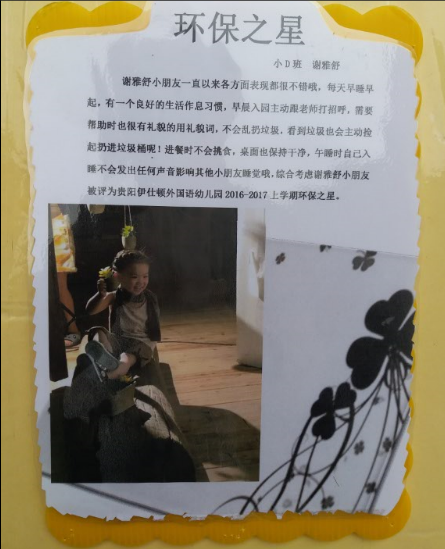 环保之星
小D班 谢雅舒
谢雅舒小朋友一直以来各方面表现都很不错哦，每天早睡早
起，有一个良好的生活作息习惯，早晨入园主动跟老师打招呼，需要
帮助时也很有礼貌的用礼貌词，不会乱扔垃圾，看到垃圾也会主动捡
起扔进垃圾桶呢！进餐时不会挑食，桌面也保持干净，午睡时自己入
睡不会发出任何声音影响其他小朋友睡觉哦，综合考虑谢雅舒小朋友
被评为贵阳伊仕顿外国语幼儿园2016-2017上学期环保之星。